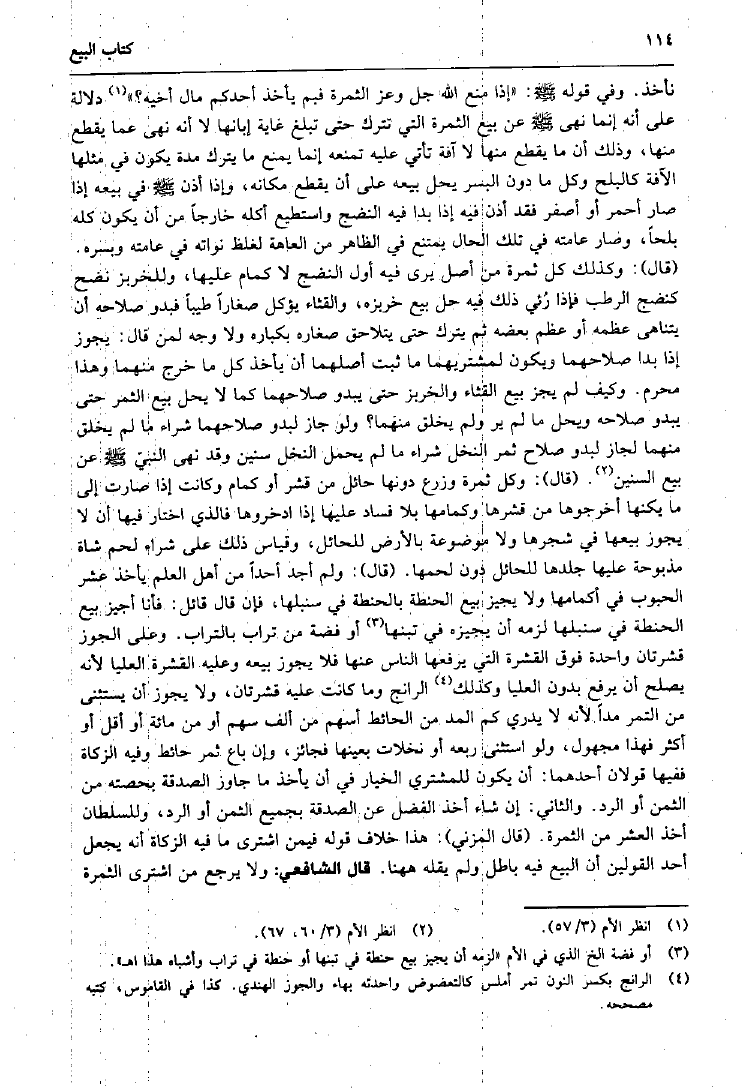 ١١٤
كتاب البيع
نأخذ. وفي قوله ﷺ: «إذا منع الله جل وعز الثمرة فبم يأخذ أحدكم مال أخيه؟»(١) دلالة
على أنه إنما نهى ﷺ عن بيع الثمرة التي تترك حتى تبلغ غاية إبانها لا أنه نهى عما يقطع
منها، وذلك أن ما يقطع منها لا آفة تأتي عليه تمنعه إنما يمنع ما يترك مدة يكون في مثلها
الآفة كالبلح وكل ما دون البسر يحل بيعه على أن يقطع مكانه، وإذا أذن ﷺ في بيعه إذا
صار أحمر أو أصفر فقد أذن فيه إذا بدا فيه النضج واستطيع أكله خارجاً من أن يكون كله
بلحاً، وصار عامته في تلك الحال يمتنع في الظاهر من العاهة لغلظ نواته في عامته وبسره.
(قال): وكذلك كل ثمرة من أصل يرى فيه أول النضج لا كمام عليها، وللخربز نضج
كنضج الرطب فإذا رُئي ذلك فيه حل بيع خربزه، والقثاء يؤكل صغاراً طيباً فبدو صلاحه أن
يتناهى عظمه أو عظم بعضه ثم يترك حتى يتلاحق صغاره بكباره ولا وجه لمن قال: يجوز
إذا بدا صلاحهما ويكون لمشتريهما ما ثبت أصلهما أن يأخذ كل ما خرج منهما وهذا
محرم. وكيف لم يجز بيع القثاء والخربز حتى يبدو صلاحهما كما لا يحل بيع الثمر حتى
يبدو صلاحه ويحل ما لم ير ولم يخلق منهما؟ ولو جاز لبدو صلاحهما شراء ما لم يخلق
منهما لجاز لبدو صلاح ثمر النخل شراء ما لم يحمل النخل سنين وقد نهى النبيّ ﷺ عن
بيع السنين(٢). (قال): وكل ثمرة وزرع دونها حائل من قشر أو كمام وكانت إذا صارت إلى
ما يكنها أخرجوها من قشرها وكمامها بلا فساد عليها إذا ادخروها فالذي اختار فيها أن لا
يجوز بيعها في شجرها ولا موضوعة بالأرض للحائل، وقياس ذلك على شراء لحم شاة
مذبوحة عليها جلدها للحائل دون لحمها. (قال): ولم أجد أحداً من أهل العلم يأخذ عشر
الحبوب في أكمامها ولا يجيز بيع الحنطة بالحنطة في سنبلها، فإن قال قائل: فأنا أجيز بيع
الحنطة في سنبلها لزمه أن يجيزه في تبنها(٣) أو فضة من تراب بالتراب. وعلى الجوز
قشرتان واحدة فوق القشرة التي يرفعها الناس عنها فلا يجوز بيعه وعليه القشرة العليا لأنه
يصلح أن يرفع بدون العليا وكذلك(٤) الرانج وما كانت عليه قشرتان، ولا يجوز أن يستثنى
من التمر مداً لأنه لا يدري كم المد من الحائط أسهم من ألف سهم أو من مائة أو أقل أو
أكثر فهذا مجهول، ولو استثنى ربعه أو نخلات بعينها فجائز، وإن باع ثمر حائط وفيه الزكاة
ففيها قولان أحدهما: أن يكون للمشتري الخيار في أن يأخذ ما جاوز الصدقة بحصته من
الثمن أو الرد. والثاني: إن شاء أخذ الفضل عن الصدقة بجميع الثمن أو الرد، وللسلطان
أخذ العشر من الثمرة. (قال المزني): هذا خلاف قوله فيمن اشترى ما فيه الزكاة أنه يجعل
أحد القولين أن البيع فيه باطل ولم يقله ههنا. قال الشافعي: ولا يرجع من اشترى الثمرة
(١) انظر الأم (٥٧/٣). (٢) انظر الأم (٦٠/٣، ٦٧).
(٣) أو فضة الخ الذي في الأم «لزمه أن يجيز بيع حنطة في تبنها أو حنطة في تراب وأشباه هذا اهـ».
(٤) الرانج بكسر النون تمر أملس كالتعضوض واحدته بهاء والجوز الهندي. كذا في القاموس، كتبه
مصححه.